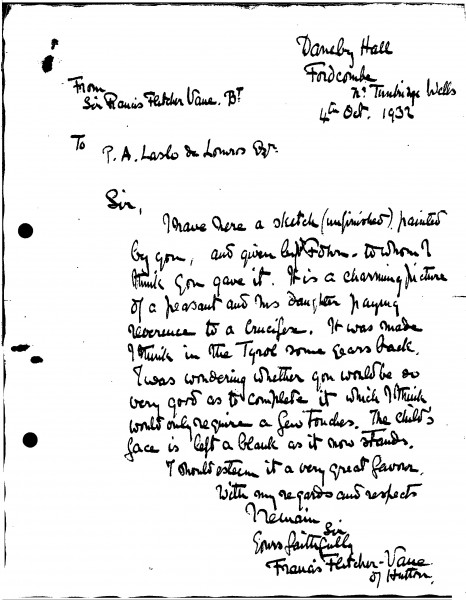 Daneby Hall
Fordcombe
nr Tunbridge Wells
4th Oct. 1932
From
Sir Francis Fletcher Vane. Bt
To P. A. Laslo de Lomros Esqr.
Sir,
I have here a sketch (unfinished) painted
by you, and given to whom I
think you gave it. It is a charming picture
of a peasant and his Daughter paying
reverence to a Crucifix. It was made
I think in the Tyrol some years back.
I was wondering whether you would be so
very good as to complete it which I think
would only require a few touches. The child's
face is left a blank as it now stands.
I should esteem it a very great favour.
With my regards and respects
I remain Sir
Yours faithfully
Francis Fletcher-Vane
of Hutton.